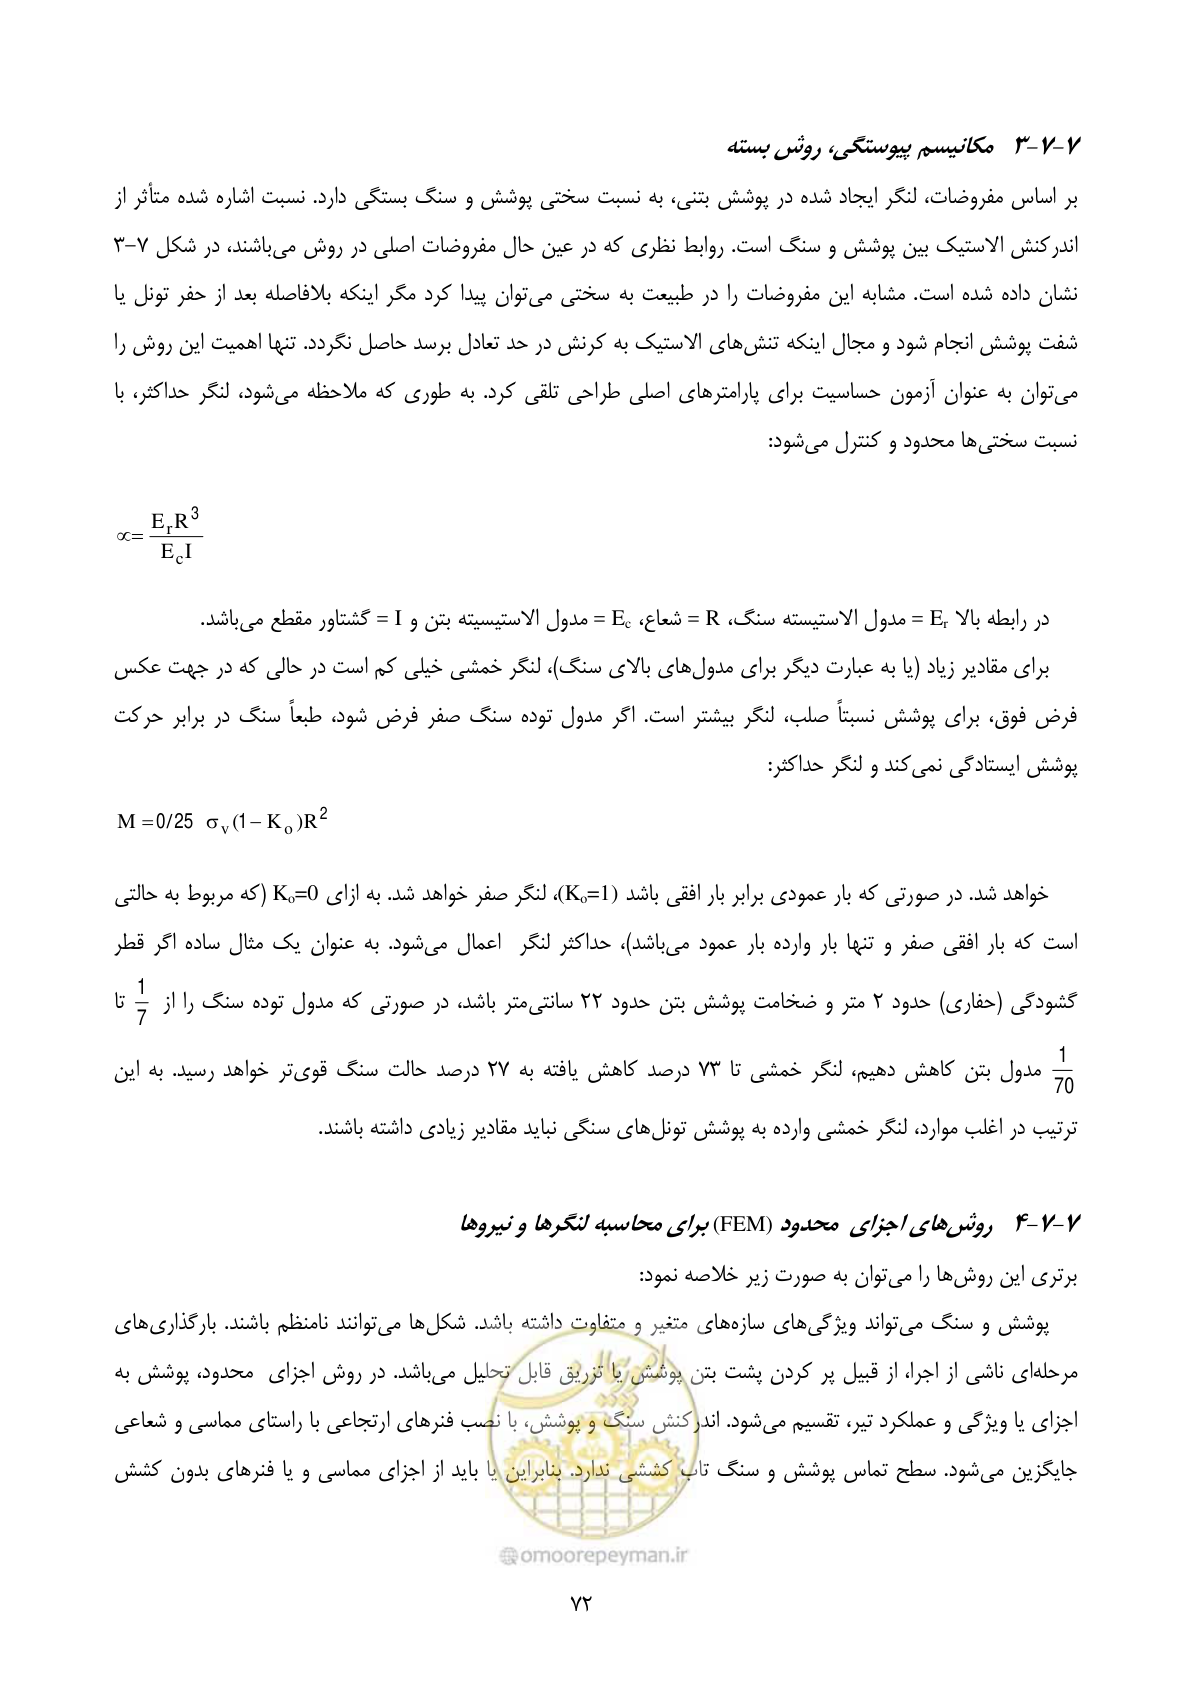 ۷-۷-۳ مکانیسم پیوستگی، روش بسته
بر اساس مفروضات، لنگر ایجاد شده در پوشش بتنی، به نسبت سختی پوشش و سنگ بستگی دارد. نسبت اشاره شده متأثر از
اندرکنش الاستیک بین پوشش و سنگ است. روابط نظری که در عین حال مفروضات اصلی در روش می‌باشند، در شکل ۷-۳
نشان داده شده است. مشابه این مفروضات را در طبیعت به سختی می‌توان پیدا کرد مگر اینکه بلافاصله بعد از حفر تونل یا
شفت پوشش انجام شود و مجال اینکه تنش‌های الاستیک به کرنش در حد تعادل برسد حاصل نگردد. تنها اهمیت این روش را
می‌توان به عنوان آزمون حساسیت برای پارامترهای اصلی طراحی تلقی کرد. به طوری که ملاحظه می‌شود، لنگر حداکثر، با
نسبت سختی‌ها محدود و کنترل می‌شود:
∝= E_r R^3 / E_c I
در رابطه بالا E_r = مدول الاستیسته سنگ، R = شعاع، E_c = مدول الاستیسیته بتن و I = گشتاور مقطع می‌باشد.
برای مقادیر زیاد (یا به عبارت دیگر برای مدول‌های بالای سنگ)، لنگر خمشی خیلی کم است در حالی که در جهت عکس
فرض فوق، برای پوشش نسبتاً صلب، لنگر بیشتر است. اگر مدول توده سنگ صفر فرض شود، طبعاً سنگ در برابر حرکت
پوشش ایستادگی نمی‌کند و لنگر حداکثر:
M =0/25 σ_v (1– K_o )R^2
خواهد شد. در صورتی که بار عمودی برابر بار افقی باشد (K_o=1)، لنگر صفر خواهد شد. به ازای K_o=0 (که مربوط به حالتی
است که بار افقی صفر و تنها بار وارده بار عمود می‌باشد)، حداکثر لنگر اعمال می‌شود. به عنوان یک مثال ساده اگر قطر
گشودگی (حفاری) حدود ۲ متر و ضخامت پوشش بتن حدود ۲۲ سانتی‌متر باشد، در صورتی که مدول توده سنگ را از 1/7 تا
1/70 مدول بتن کاهش دهیم، لنگر خمشی تا ۷۳ درصد کاهش یافته به ۲۷ درصد حالت سنگ قوی‌تر خواهد رسید. به این
ترتیب در اغلب موارد، لنگر خمشی وارده به پوشش تونل‌های سنگی نباید مقادیر زیادی داشته باشند.
۷-۷-۴ روش‌های اجزای محدود (FEM) برای محاسبه لنگرها و نیروها
برتری این روش‌ها را می‌توان به صورت زیر خلاصه نمود:
پوشش و سنگ می‌تواند ویژگی‌های سازه‌های متغیر و متفاوت داشته باشد. شکل‌ها می‌توانند نامنظم باشند. بارگذاری‌های
مرحله‌ای ناشی از اجرا، از قبیل پر کردن پشت بتن پوشش یا تزریق قابل تحلیل می‌باشد. در روش اجزای محدود، پوشش به
اجزای یا ویژگی و عملکرد تیر، تقسیم می‌شود. اندرکنش سنگ و پوشش، با نصب فنرهای ارتجاعی با راستای مماسی و شعاعی
جایگزین می‌شود. سطح تماس پوشش و سنگ تاب کششی ندارد. بنابراین یا باید از اجزای مماسی و یا فنرهای بدون کشش
امور پیمان
@omoorepeyman.ir
۷۲